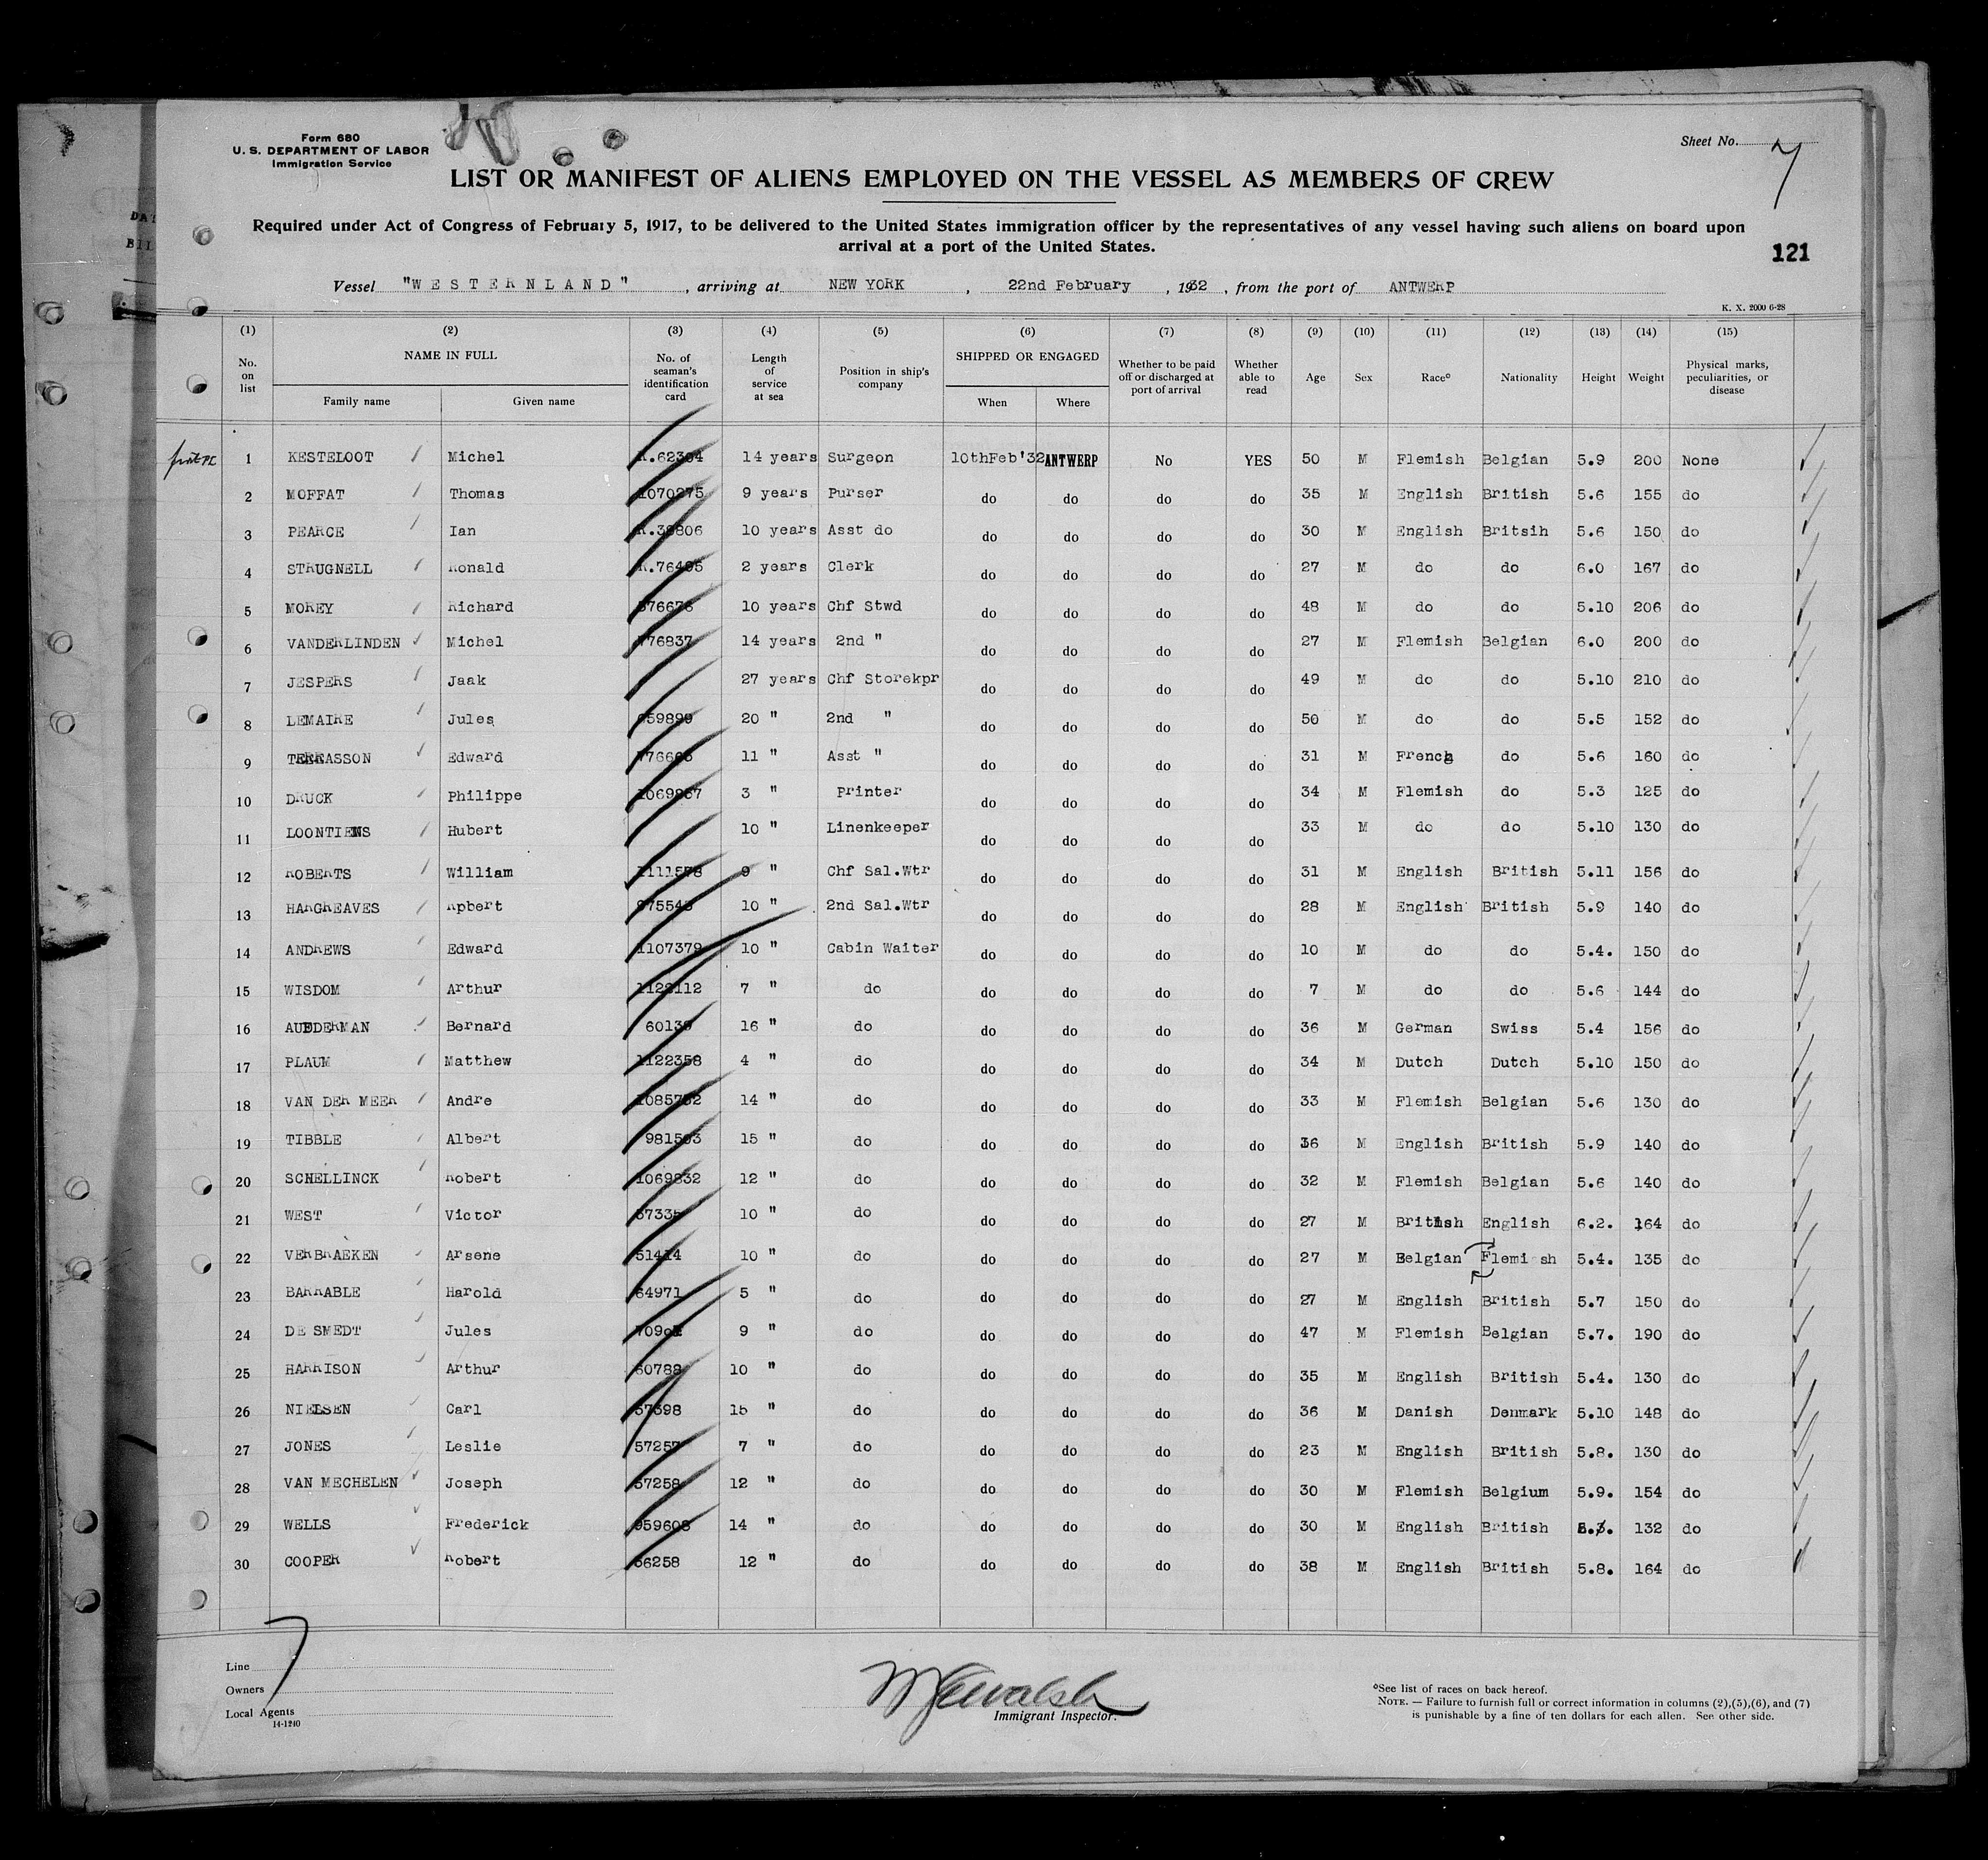 Form 680
U. S. DEPARTMENT OF LABOR
Immigration Service
Sheet No. 7
LIST OR MANIFEST OF ALIENS EMPLOYED ON THE VESSEL AS MEMBERS OF CREW
Required under Act of Congress of February 5, 1917, to be delivered to the United States immigration officer by the representatives of any vessel having such aliens on board upon
arrival at a port of the United States.
121
Vessel "WESTERNLAND", arriving at NEW YORK, 22nd February, 1932, from the port of ANTWERP
K. X. 2000 6-28
(1) (2) (3) (4) (5) (6) (7) (8) (9) (10) (11) (12) (13) (14) (15)
No. on list NAME IN FULL Family name Given name No. of seaman's identification card Length of service at sea Position in ship's company SHIPPED OR ENGAGED When Where Whether to be paid off or discharged at port of arrival Whether able to read Age Sex Race° Nationality Height Weight Physical marks, peculiarities, or disease
1 KESTELOOT Michel 14 years Surgeon 10thFeb'32 ANTWERP No YES 50 M Flemish Belgian 5.9 200 None
2 MOFFAT Thomas 1070275 9 years Purser do do do do 35 M English British 5.6 155 do
3 PEARCE Ian 10 years Asst do do do do do 30 M English Britsih 5.6 150 do
4 STRUGNELL Ronald 2 years Clerk do do do do 27 M do do 6.0 167 do
5 MOREY Richard 10 years Chf Stwd do do do do 48 M do do 5.10 206 do
6 VANDERLINDEN Michel 776837 14 years 2nd " do do do do 27 M Flemish Belgian 6.0 200 do
7 JESPERS Jaak 27 years Chf Storekpr do do do do 49 M do do 5.10 210 do
8 LEMAIRE Jules 20 " 2nd " do do do do 50 M do do 5.5 152 do
9 TERRASSON Edward 11 " Asst " do do do do 31 M French do 5.6 160 do
10 DRUCK Philippe 3 " Printer do do do do 34 M Flemish do 5.3 125 do
11 LOONTIENS Hubert 10 " Linenkeeper do do do do 33 M do do 5.10 130 do
12 ROBERTS William 1111578 9 " Chf Sal.Wtr do do do do 31 M English British 5.11 156 do
13 HARGREAVES Rpbert 10 " 2nd Sal.Wtr do do do do 28 M English British 5.9 140 do
14 ANDREWS Edward 1107379 10 " Cabin Waiter do do do do 10 M do do 5.4. 150 do
15 WISDOM Arthur 7 " do do do do do 7 M do do 5.6 144 do
16 AUEDERMAN Bernard 16 " do do do do do 36 M German Swiss 5.4 156 do
17 PLAUM Matthew 1122358 4 " do do do do do 34 M Dutch Dutch 5.10 150 do
18 VAN DER MEER Andre 14 " do do do do do 33 M Flemish Belgian 5.6 130 do
19 TIBBLE Albert 15 " do do do do do 36 M English British 5.9 140 do
20 SCHELLINCK Robert 1069832 12 " do do do do do 32 M Flemish Belgian 5.6 140 do
21 WEST Victor 10 " do do do do do 27 M British English 6.2. 164 do
22 VERBRAEKEN Arsene 51414 10 " do do do do do 27 M Belgian Flemish 5.4. 135 do
23 BARRABLE Harold 64971 5 " do do do do do 27 M English British 5.7 150 do
24 DE SMEDT Jules 9 " do do do do do 47 M Flemish Belgian 5.7. 190 do
25 HARRISON Arthur 60788 10 " do do do do do 35 M English British 5.4. 130 do
26 NIELSEN Carl 15 " do do do do do 36 M Danish Denmark 5.10 148 do
27 JONES Leslie 57257 7 " do do do do do 23 M English British 5.8. 130 do
28 VAN MECHELEN Joseph 57258 12 " do do do do do 30 M Flemish Belgium 5.9. 154 do
29 WELLS Frederick 959608 14 " do do do do do 30 M English British 132 do
30 COOPER Robert 56258 12 " do do do do do 38 M English British 5.8. 164 do
Line
Owners
Local Agents
14-1240
7
Immigrant Inspector.
°See list of races on back hereof.
NOTE. — Failure to furnish full or correct information in columns (2),(5),(6), and (7)
is punishable by a fine of ten dollars for each alien. See other side.